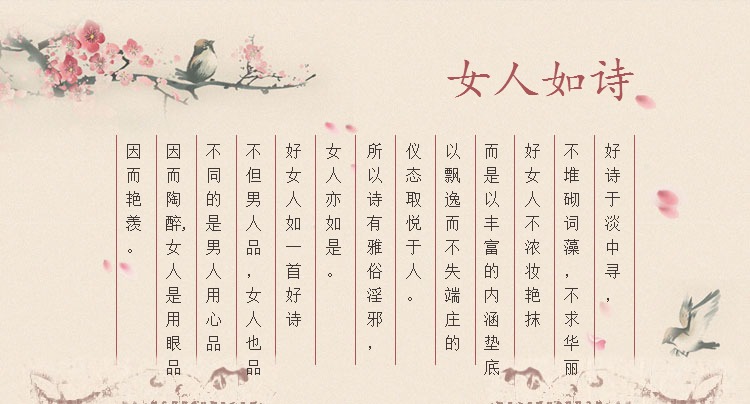 女人如诗
好诗于淡中寻，
不堆砌词藻，不求华丽
好女人不浓妆艳抹
而是以丰富的内涵垫底
以飘逸而不失端庄的
仪态取悦于人。
所以诗有雅俗淫邪，
女人亦如是。
好女人如一首好诗
不但男人品，女人也品
不同的是男人用心品
因而陶醉,女人是用眼品
因而艳羡。